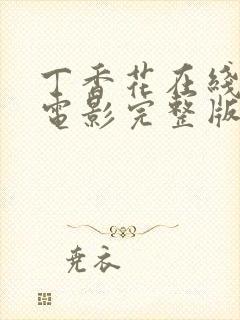 丁香花在线
电影完整版
尧衣